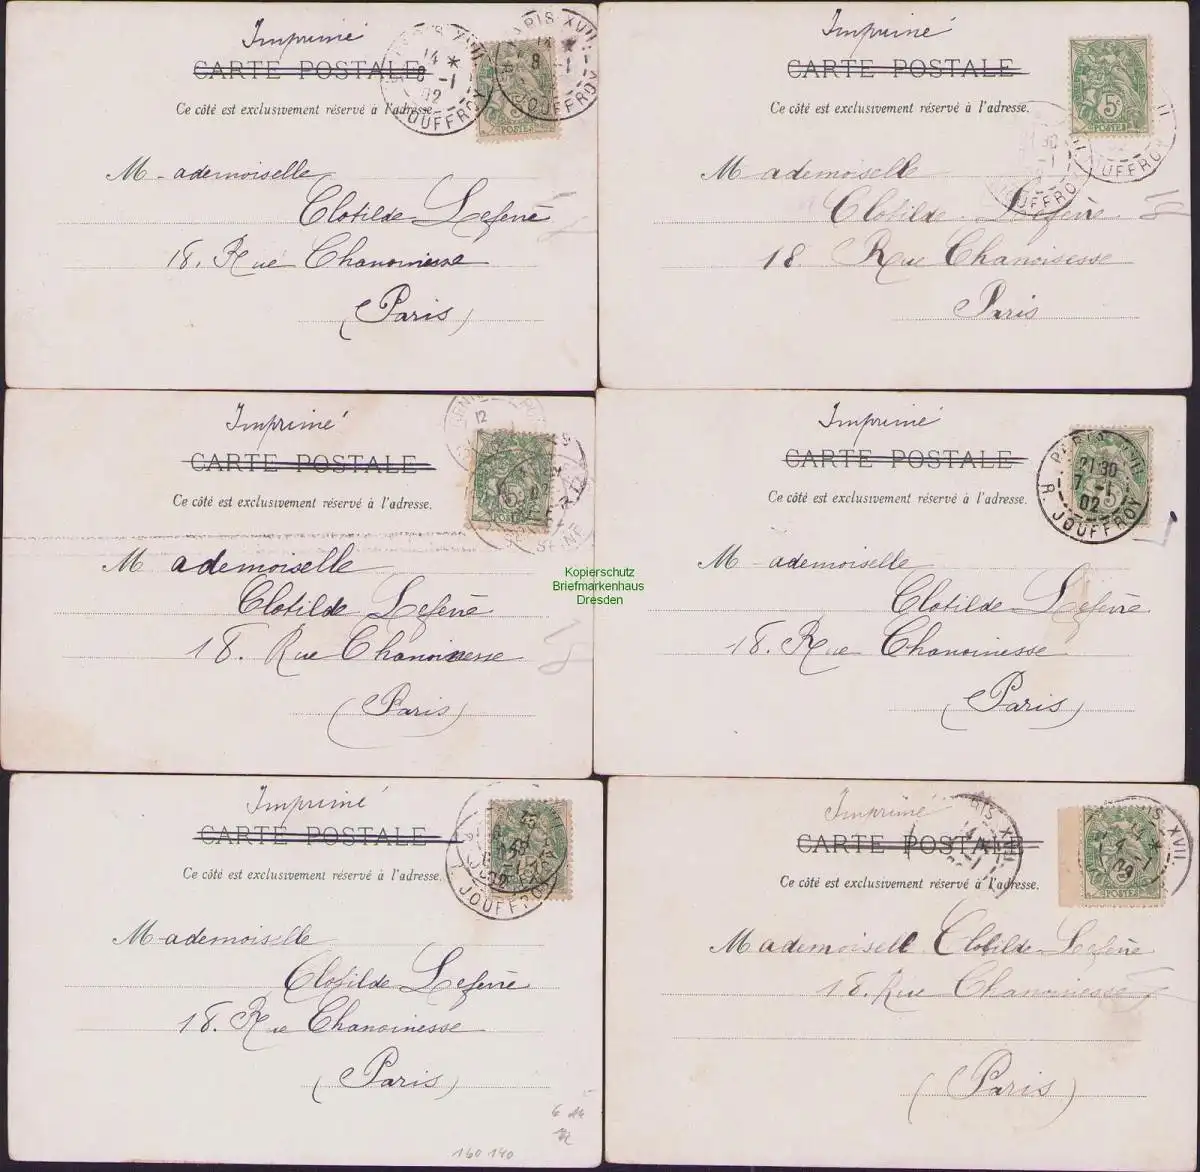 Imprimé
CARTE POSTALE
Ce côté est exclusivement réservé à l'adresse.
PARIS XVII
14 *
8 -1
02
R. JOUFFROY
5c
POSTES
M-ademoiselle
Clotilde Lefevre
18. Rue Chanoinesse
(Paris)
Imprimé
CARTE POSTALE
Ce côté est exclusivement réservé à l'adresse.
21 30
-1
JOUFFROY
5c
POSTES
M ademoiselle
Clotilde Lefevre
18 Rue Chanoisesse
Paris
Imprimé
CARTE POSTALE
Ce côté est exclusivement réservé à l'adresse.
12
SEINE
M ademoiselle
Clotilde Lefevre
18. Rue Chanoinesse
(Paris)
Imprimé
CARTE POSTALE
Ce côté est exclusivement réservé à l'adresse.
PARIS XVII
21 30
7 -1
02
R. JOUFFROY
M-ademoiselle
Clotilde Lefevre
18. Rue Chanoinesse
(Paris)
Kopierschutz
Briefmarkenhaus
Dresden
Imprimé
CARTE POSTALE
Ce côté est exclusivement réservé à l'adresse.
02
R. JOUFFROY
M-ademoiselle
Clotilde Lefevre
18. Rue Chanoinesse
(Paris)
160 140
Imprimé
CARTE POSTALE
Ce côté est exclusivement réservé à l'adresse.
PARIS XVII
14 *
POSTES
Mademoiselle Clotilde Lefevre
18. Rue Chanoinesse
(Paris)